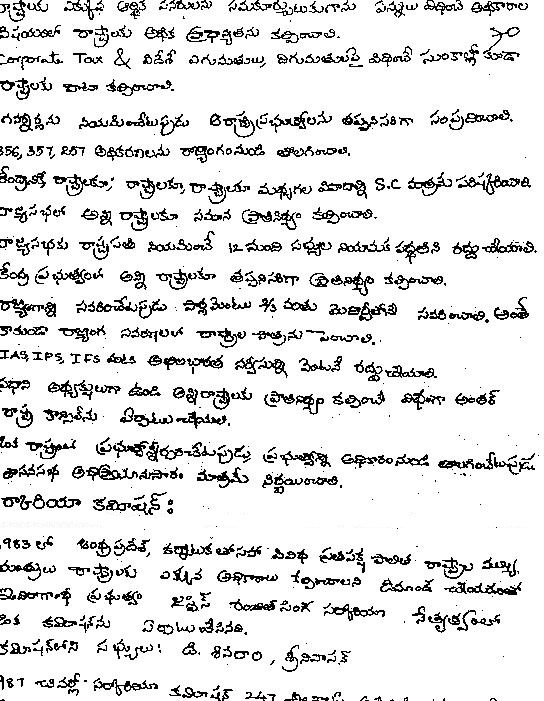 రాష్ట్రాలకు ఎక్కువ ఆర్థిక వనరులను సమకూర్చేటందుకుగాను పన్నులు విధించే అధికారాల
విషయంలో రాష్ట్రాలకు అధిక ప్రాధాన్యతను కల్పించాలి.
Corporate Tax & విదేశీ ఎగుమతులు, దిగుమతులపై విధించే సుంకాల్లో కూడా
రాష్ట్రాలకు వాటా కల్పించాలి.
గవర్నర్లను నియమించేటప్పుడు ఆ రాష్ట్రప్రభుత్వాలను తప్పనిసరిగా సంప్రదించాలి.
356, 357, 257 అధికరణలను రాజ్యాంగంనుండి తొలగించాలి.
కేంద్రానికి రాష్ట్రాలకూ, రాష్ట్రాలకూ, రాష్ట్రాలకూ మధ్యగల వివాదాన్ని S.C మాత్రమే పరిష్కరించాలి
రాజ్యసభలో అన్ని రాష్ట్రాలకూ సమాన ప్రాతినిధ్యం కల్పించాలి.
రాజ్యసభకు రాష్ట్రపతి నియమించే 12 మంది సభ్యుల నియామక పద్ధతిని రద్దు చేయాలి.
కేంద్ర ప్రభుత్వంలో అన్ని రాష్ట్రాలకూ తప్పనిసరిగా ప్రాతినిధ్యం కల్పించాలి.
రాజ్యాంగాన్ని సవరించేటప్పుడు పార్లమెంటు 2/3 వంతు మెజార్టీతోనే సవరించాలి. అంతే
కాకుండా రాజ్యాంగ సవరణలలో రాష్ట్రాల పాత్రను పెంచాలి.
IAS, IPS, IFS వంటి అఖిలభారత సర్వీసుల్ని వెంటనే రద్దు చేయాలి.
ప్రధాని అధ్యక్షులుగా ఉండి అన్ని రాష్ట్రాలకు ప్రాతినిధ్యం కల్పించే విధంగా అంతర్
రాష్ట్ర కౌన్సిల్‌ను ఏర్పాటు చేయాలి.
ఒక రాష్ట్రంలో ప్రభుత్వాన్ని ప్రభుత్వాన్ని అధికారంనుండి తొలగించేటప్పుడు
శాసనసభ అభిప్రాయానుసారం మాత్రమే నిర్ణయించాలి.
సర్కారియా కమీషన్ :
1983 లో ఆంధ్రప్రదేశ్, కర్ణాటకతోసహా వివిధ ప్రతిపక్ష పాలిత రాష్ట్రాల ముఖ్య
మంత్రులు రాష్ట్రాలకు ఎక్కువ అధికారాలు కల్పించాలని డిమాండ్ చేయడంతో
ఇందిరాగాంధీ ప్రభుత్వం జస్టిస్ రంజిత్ సింగ్ సర్కారియా నేతృత్వంలో
ఒక కమీషన్‌ను ఏర్పాటు చేసినది.
కమీషన్‌లోని సభ్యులు : బి. శివరాం, శ్రీనివాసన్
1987 సర్కారియా కమీషన్ 247